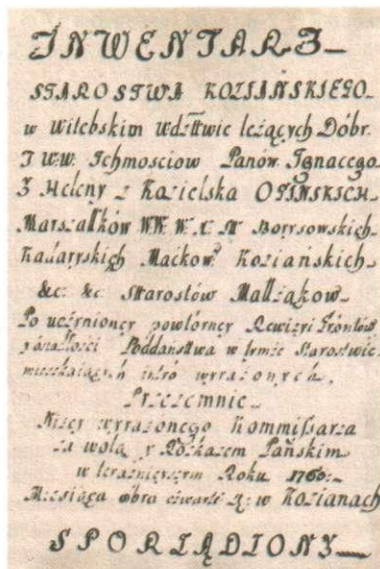 INWENTARZ
STAROSTWA KOZIAŃSKIEGO
w witebskim wdztwie leżących Dóbr
J ww. Jchmosciow Panów Jgnacego
J Heleny z Kozielska OGINSKICH
Marszałków W. W. X. L. Borysowskich
Kadaryskich Maćkow. Koziańskich
&c. &c. Starostów Małżąkow
Po uczynioney powtórney Rewizyi Gróntow
y osiadłosci Poddaństwa w tymże Starostwie
mieszkaiących intró wyrażonych,
Przezemnie
Niżey wyrażonego Kommissarza
za wolą y Rozkazem Pańskim
w teraznieyszym Roku 1760:
Miesiąca 8bra czwartę 4: w Kozianach
SPORZĄDZONY